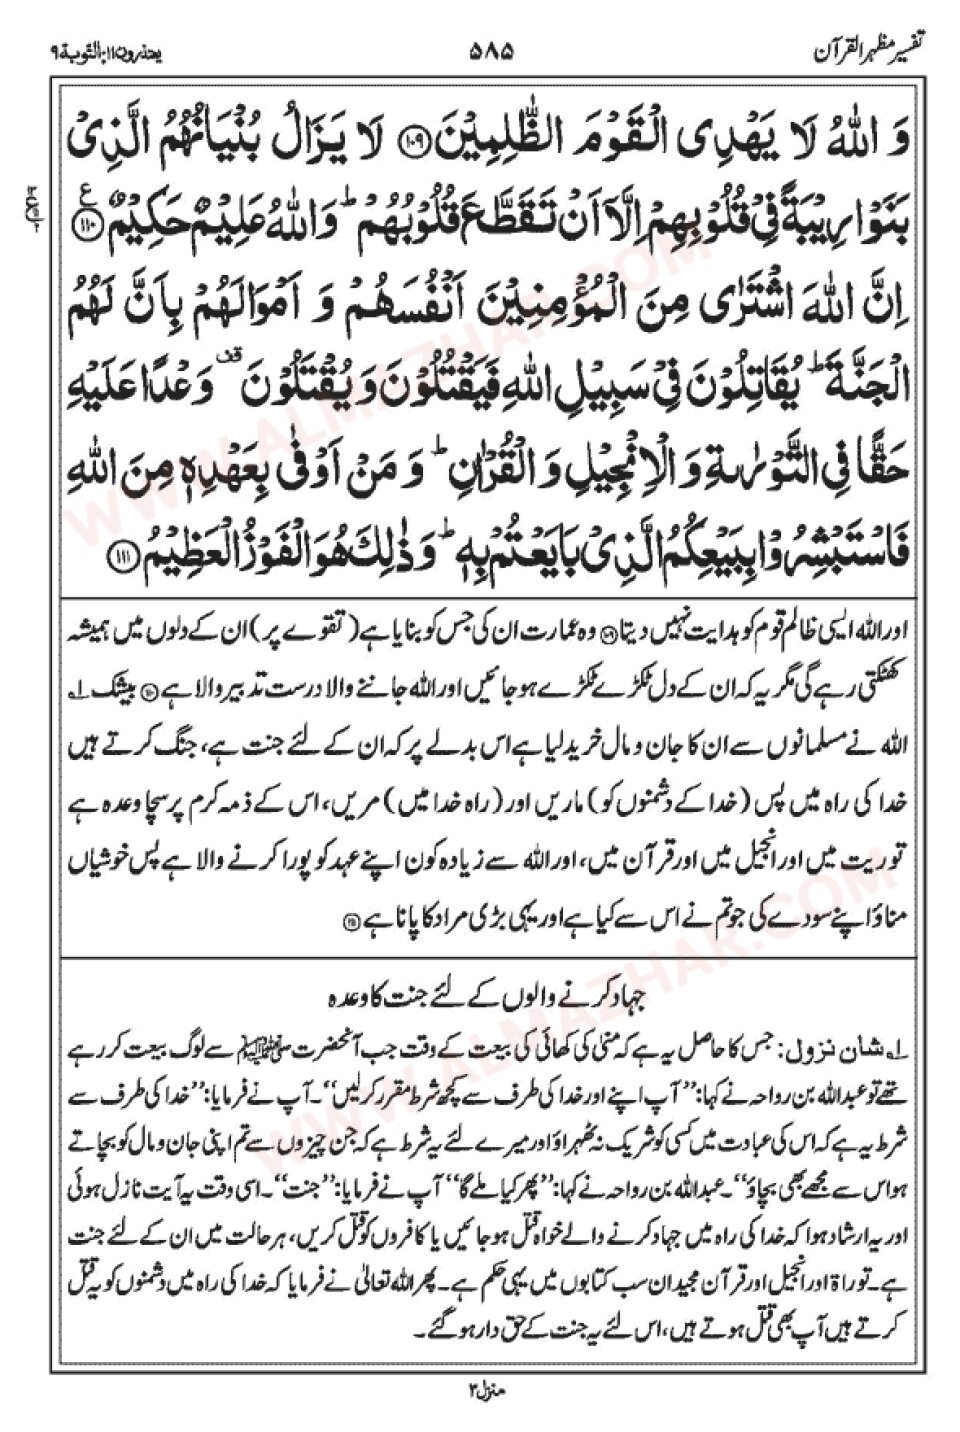 تفسیر مظہر القرآن ۵۸۵ یعتذرون۱۱:التوبة۹
وَ اللّٰهُ لَا یَهْدِی الْقَوْمَ الظّٰلِمِیْنَ ﴿۱۰۹﴾ لَا یَزَالُ بُنْیَانُهُمُ الَّذِیْ
بَنَوْا رِیْبَةً فِیْ قُلُوْبِهِمْ اِلَّاۤ اَنْ تَقَطَّعَ قُلُوْبُهُمْ ؕ وَاللّٰهُ عَلِیْمٌ حَكِیْمٌ ﴿۱۱۰﴾ ع
اِنَّ اللّٰهَ اشْتَرٰی مِنَ الْمُؤْمِنِیْنَ اَنْفُسَهُمْ وَ اَمْوَالَهُمْ بِاَنَّ لَهُمُ
الْجَنَّةَ ؕ یُقَاتِلُوْنَ فِیْ سَبِیْلِ اللّٰهِ فَیَقْتُلُوْنَ وَ یُقْتَلُوْنَ قف وَعْدًا عَلَیْهِ
حَقًّا فِی التَّوْرٰىةِ وَ الْاِنْجِیْلِ وَ الْقُرْاٰنِ ؕ وَ مَنْ اَوْفٰی بِعَهْدِهٖ مِنَ اللّٰهِ
فَاسْتَبْشِرُوْا بِبَیْعِكُمُ الَّذِیْ بَایَعْتُمْ بِهٖ ؕ وَ ذٰلِكَ هُوَ الْفَوْزُ الْعَظِیْمُ ﴿۱۱۱﴾
اور اللہ ایسی ظالم قوم کو ہدایت نہیں دیتا ﴿۱۰۹﴾ وہ عمارت ان کی جس کو بنایا ہے (تقوے پر) ان کے دلوں میں ہمیشہ
کھٹکتی رہے گی مگر یہ کہ ان کے دل ٹکڑے ٹکڑے ہو جائیں اور اللہ جاننے والا درست تدبیر والا ہے ﴿۱۱۰﴾ بیشک ۱؎
اللہ نے مسلمانوں سے ان کا جان و مال خرید لیا ہے اس بدلے پر کہ ان کے لئے جنت ہے، جنگ کرتے ہیں
خدا کی راہ میں پس (خدا کے دشمنوں کو) ماریں اور (راہ خدا میں) مریں، اس کے ذمہ کرم پر سچا وعدہ ہے
توریت میں اور انجیل میں اور قرآن میں، اور اللہ سے زیادہ کون اپنے عہد کو پورا کرنے والا ہے پس خوشیاں
مناؤ اپنے سودے کی جو تم نے اس سے کیا ہے اور یہی بڑی مراد کا پانا ہے ﴿۱۱۱﴾
جہاد کرنے والوں کے لئے جنت کا وعدہ
۱؎ شان نزول: جس کا حاصل یہ ہے کہ منیٰ کی کھائی کی بیعت کے وقت جب آنحضرت ﷺ سے لوگ بیعت کر رہے
تھے تو عبداللہ بن رواحہ نے کہا: ’’آپ اپنے اور خدا کی طرف سے کچھ شرط مقرر کرلیں‘‘۔ آپ نے فرمایا: ’’خدا کی طرف سے
شرط یہ ہے کہ اس کی عبادت میں کسی کو شریک نہ ٹھہراؤ اور میرے لئے یہ شرط ہے کہ جن چیزوں سے تم اپنی جان و مال کو بچاتے
ہو اس سے مجھے بھی بچاؤ‘‘۔ عبداللہ بن رواحہ نے کہا: ’’پھر کیا ملے گا‘‘ آپ نے فرمایا: ’’جنت‘‘۔ اسی وقت یہ آیت نازل ہوئی
اور یہ ارشاد ہوا کہ خدا کی راہ میں جہاد کرنے والے خواہ قتل ہو جائیں یا کافروں کو قتل کریں، ہر حالت میں ان کے لئے جنت
ہے۔ توراۃ اور انجیل اور قرآن مجید ان سب کتابوں میں یہی حکم ہے۔ پھر اللہ تعالیٰ نے فرمایا کہ خدا کی راہ میں دشمنوں کو یہ قتل
کرتے ہیں آپ بھی قتل ہوتے ہیں، اس لئے یہ جنت کے حق دار ہو گئے۔
منزل ۲
WWW.ALMAZHAR.COM
WWW.ALMAZHAR.COM